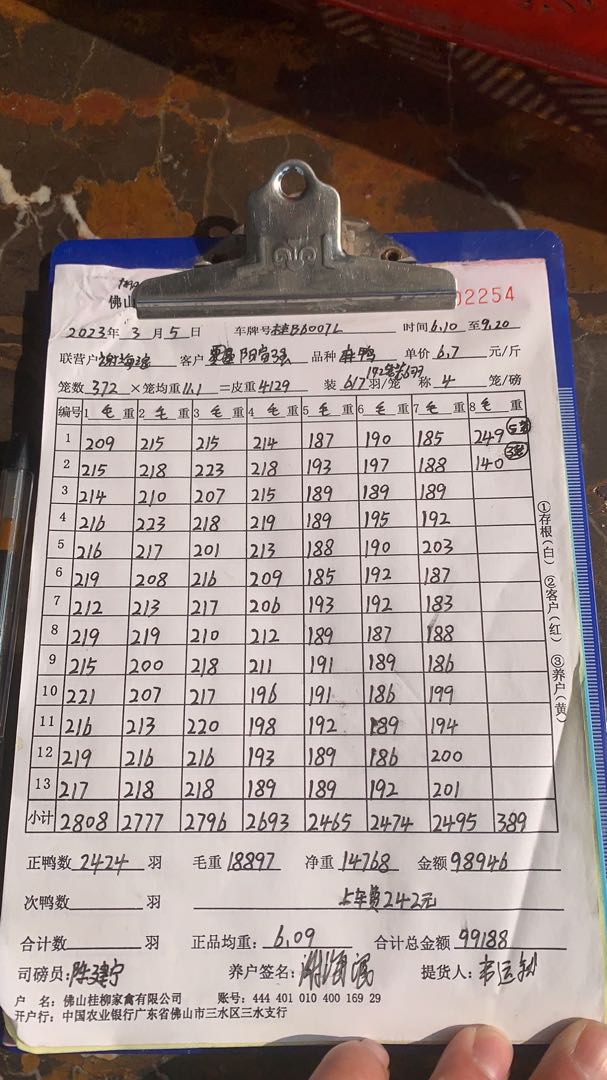 佛山
02254
2023年 3月 5日 车牌号桂B6007L 时间6.10至9.20
联营户 客户 阳宫强 品种 麻鸭 单价 6.7 元/斤
笼数 372 ×笼均重 11.1 =皮重 4129 装 6 17 羽/笼 称 4 笼/磅
编号 1 毛重 2 毛重 3 毛重 4 毛重 5 毛重 6 毛重 7 毛重 8 毛重
1 209 215 215 214 187 190 185 249
2 215 218 223 218 193 197 188 140
3 214 210 207 215 189 189 189
4 216 223 218 219 189 195 192
5 216 217 201 213 188 190 203
6 219 208 216 209 185 192 187
7 212 213 217 206 193 192 183
8 219 219 210 212 189 187 188
9 215 200 218 211 191 189 186
10 221 207 217 196 191 186 199
11 216 213 220 198 192 189 194
12 219 216 216 193 189 186 200
13 217 218 218 189 189 192 201
小计 2808 2777 2796 2693 2465 2474 2495 389
正鸭数 2424 羽 毛重 18897 净重 14768 金额 98946
次鸭数 羽 上车费242元
合计数 羽 正品均重: 6.09 合计总金额 99188
司磅员: 陈建宁 养户签名: 提货人: 韦运利
户 名: 佛山桂柳家禽有限公司 账号: 444 401 010 400 169 29
开户行: 中国农业银行广东省佛山市三水区三水支行
①存根(白) ②客户(红) ③养户(黄)